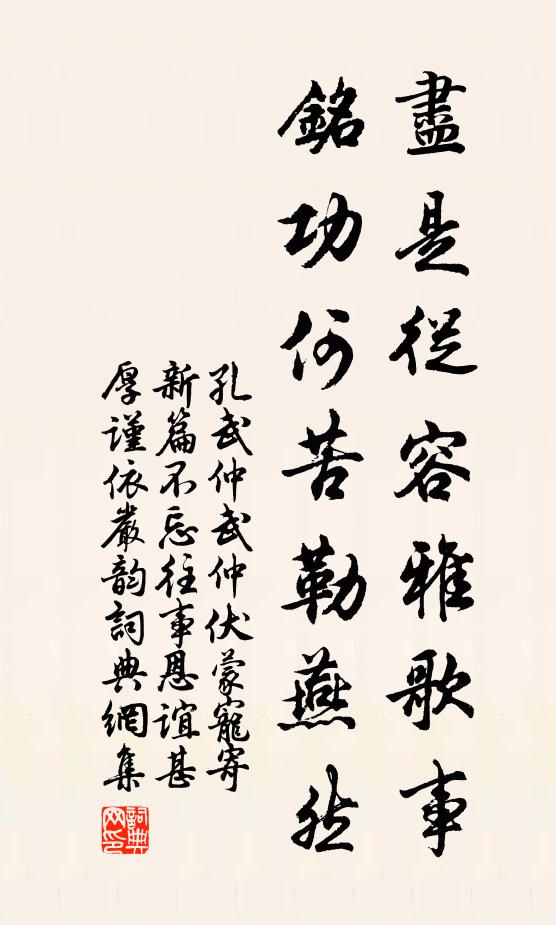 盡是從容雅歌事
銘功何苦勒燕然
孔武仲武仲伏蒙寵寄
新篇不忘往事恩誼甚
厚謹依嚴韵詞典網集
詞典
网印